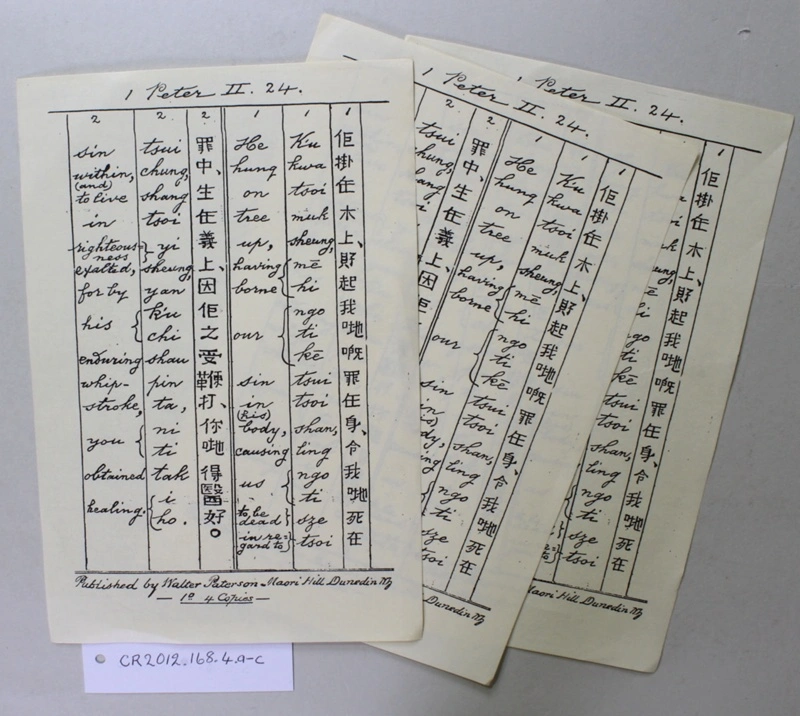 1 Peter II. 24.
1
佢掛在木上、孭起我哋嘅罪在身、令我哋死在
1
Ku kwa tsoi muk sheung, mē hi ngo ti kē tsui tsoi shan, ling ngo ti sze tsoi
1
He hung on tree up, having borne our sin in (his) body, causing us to be dead in regard to
2
罪中、生在義上、因佢之受鞭打、你哋得醫好。
2
tsui chung, shang tsoi yi sheung, yan k'u chi shau pin ta, ni ti tak i ho.
2
sin within, (and) to live in righteousness exalted, for by his enduring whip-stroke, you obtained healing.
Published by Walter Paterson - Maori Hill Dunedin NZ
— 1ᵈ 4 Copies —
1 Peter II. 24.
1
佢掛在木上、孭起我哋嘅罪在身、令我哋死在
1
Ku kwa tsoi muk sheung, mē hi ngo ti kē tsui tsoi shan, ling ngo ti sze tsoi
1
He hung on tree up, having borne our sin in
2
罪中、生在義上、因佢
2
tsui
Dunedin NZ
1 Peter II. 24.
1
佢掛在木上、孭起我哋嘅罪在身、令我哋死在
tsui tsoi shan, ling ngo ti sze tsoi
Maori Hill Dunedin NZ
CR2012.168.4.a-c